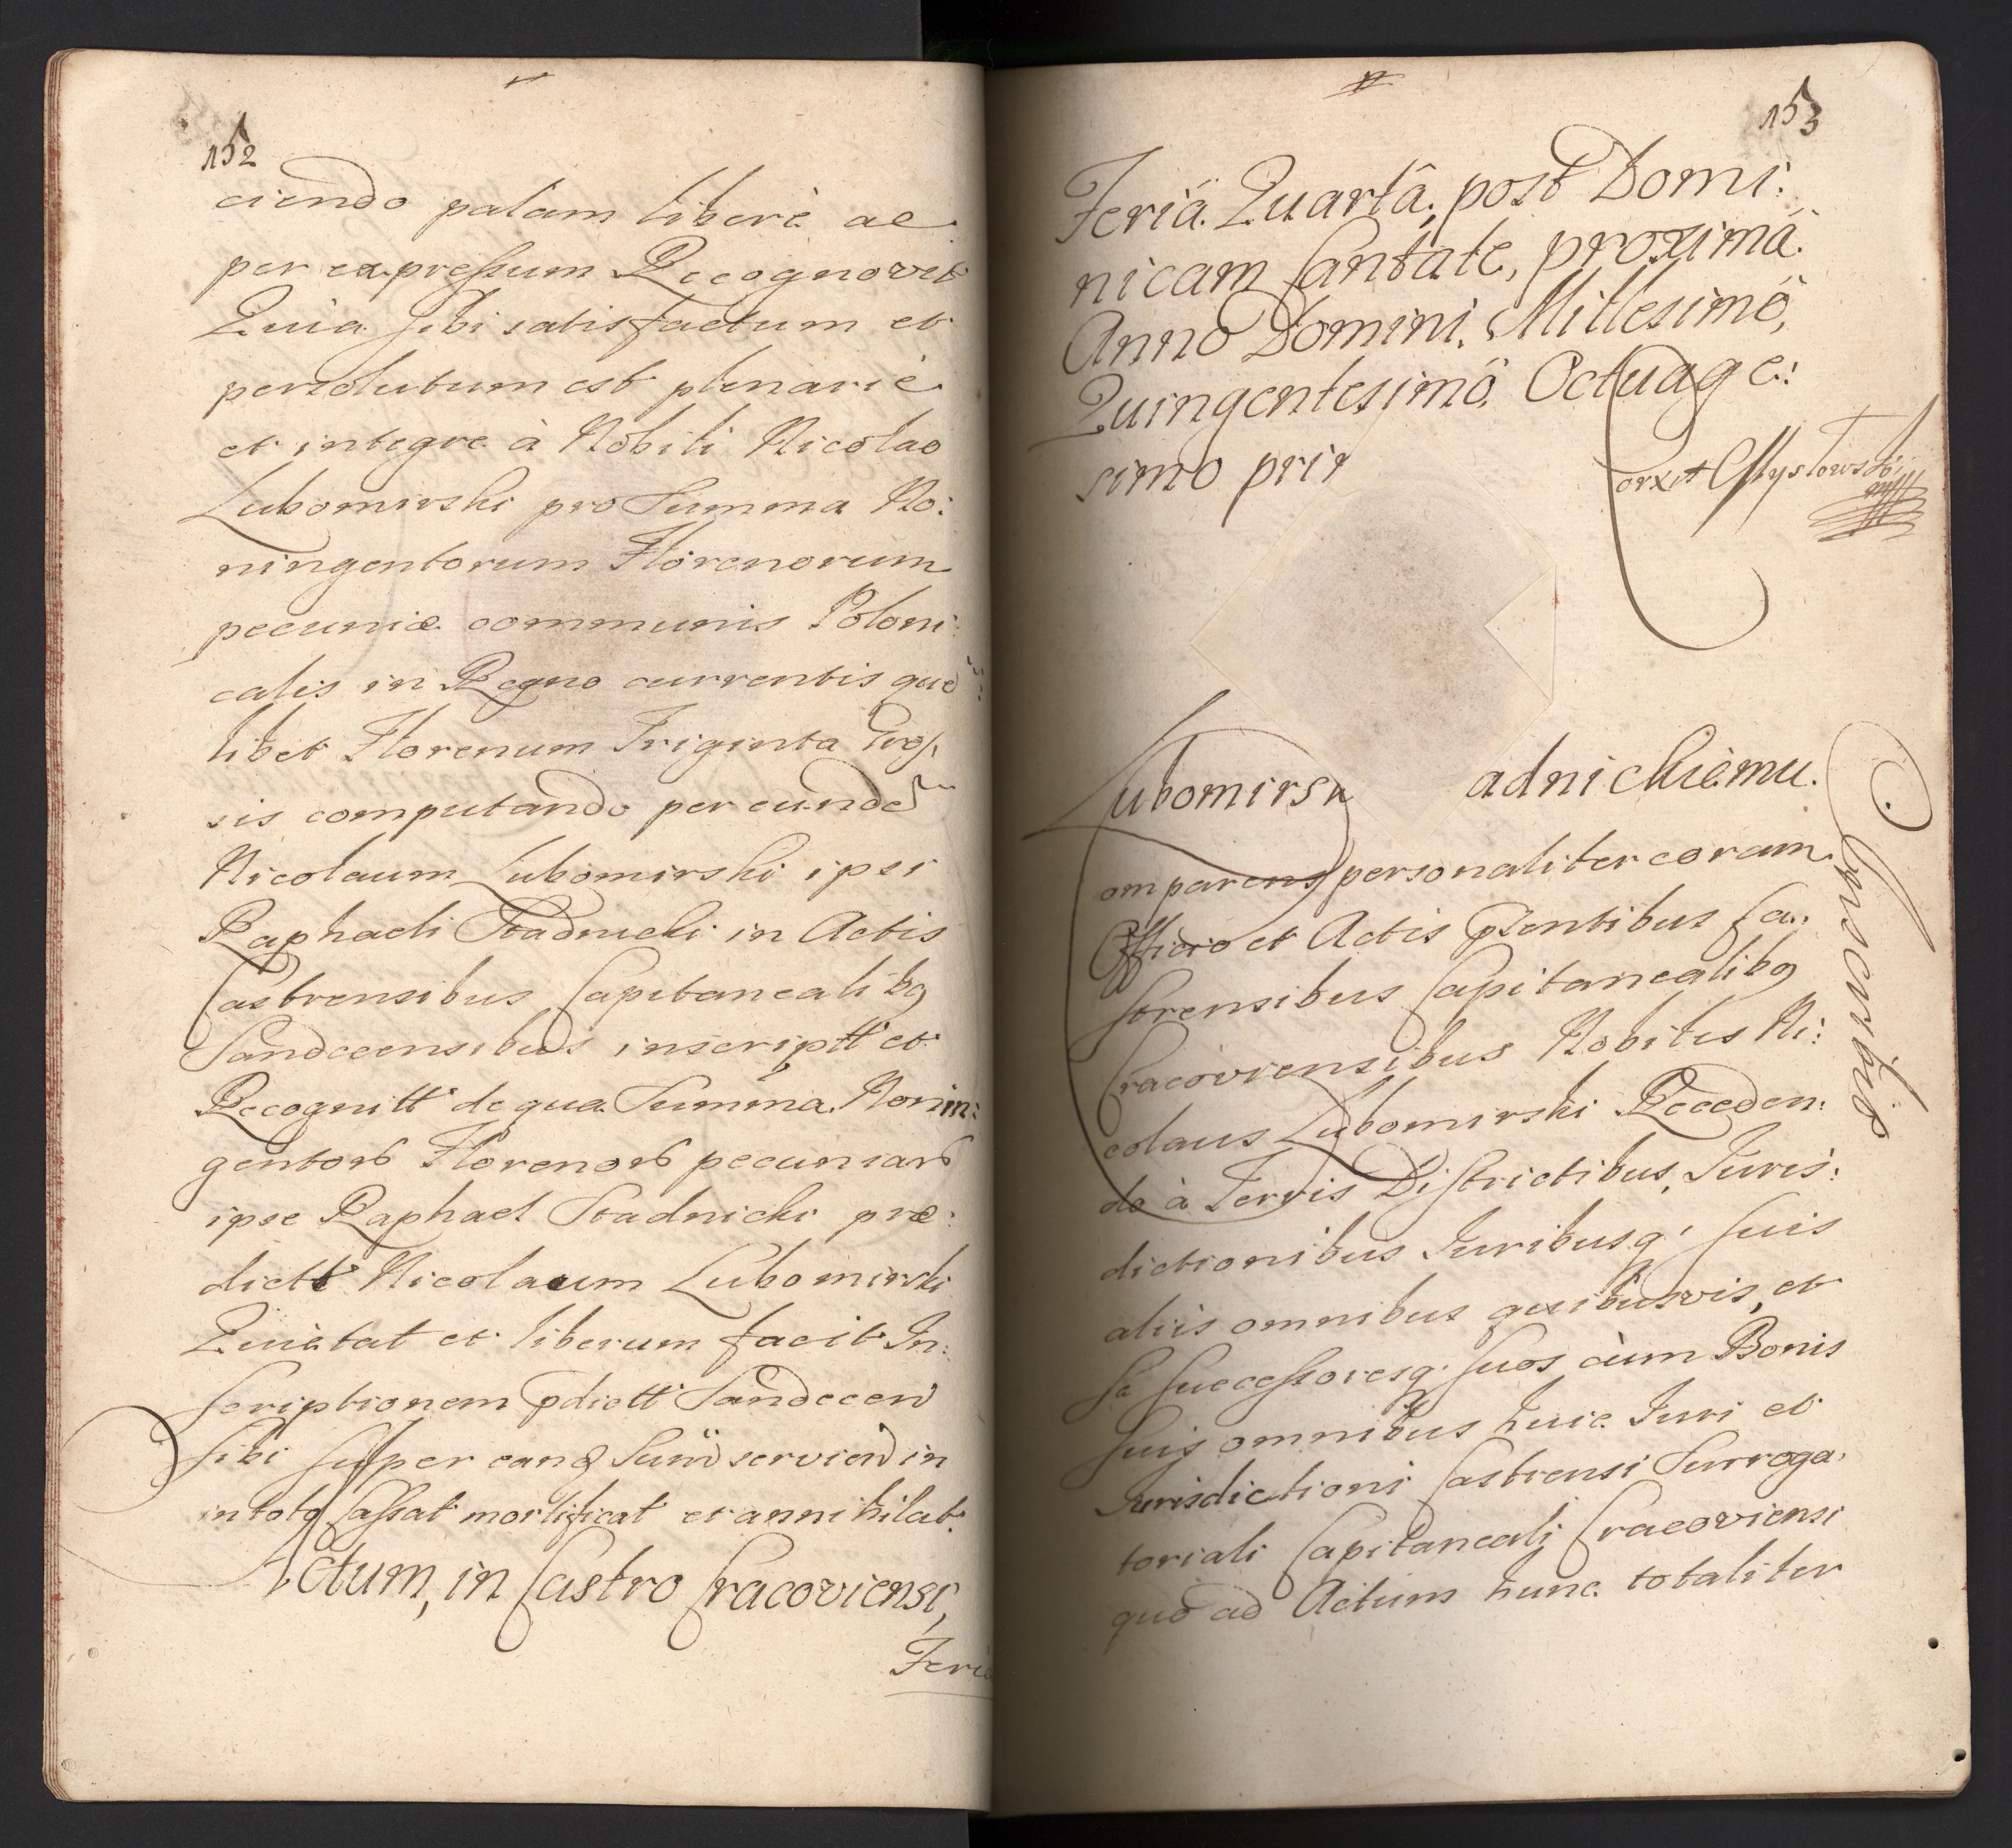 152
ciendo palam liberè ac
per expressum Recognovit
Quia sibi satisfactum et
persolutum est plenarie
et integre à Nobili Nicolao
Lubomirski pro Summa No:
ningentorum Florenorum
pecuniæ communis Poloni:
calis in Regno currentis quē
libet Florenum Triginta Gros
sis computando per eunde
Nicolaum Lubomirski ipsi
Raphaeli Stadnicki in Actis
Castrensibus Capitanealibq
Sandecensibus inscriptt et
Recognitt de qua Summa Nonin:
gentor Florenor pecuniar
ipse Raphael Stadnicki præ:
dictt Nicolaum Lubomirski
Quietat et liberum facit In:
scriptionem pdictt Sandecen
sibi super eand Sum̄ servien in
in toto Cassat mortificat et annihilat.
Actum, in Castro Cracoviensi,
Feria
153
Feriâ Quartâ, post Domi:
nicam Cantate, proximâ
Anno Domini, Millesimô,
Quingentesimô, Octuage:
simo pri
Corxit Mysłowski
Lubomirs adnickiemu.
Conscribit
omparens personaliter coram
Officio et Actis pntibus Ca:
strensibus Capitanealibq
Cracoviensibus Nobilis Ni:
colaus Lubomirski Receden:
do à Terris Districtibus, Juris:
dictionibus Juribusq suis
aliis omnibus quibusvis, et
se successoresq suos cùm Bonis
suis omnibus huic Juri et
Jurisdictioni Castrensi Surroga:
toriali Capitaneali Cracoviensi
quo ad Actum hunc totaliter